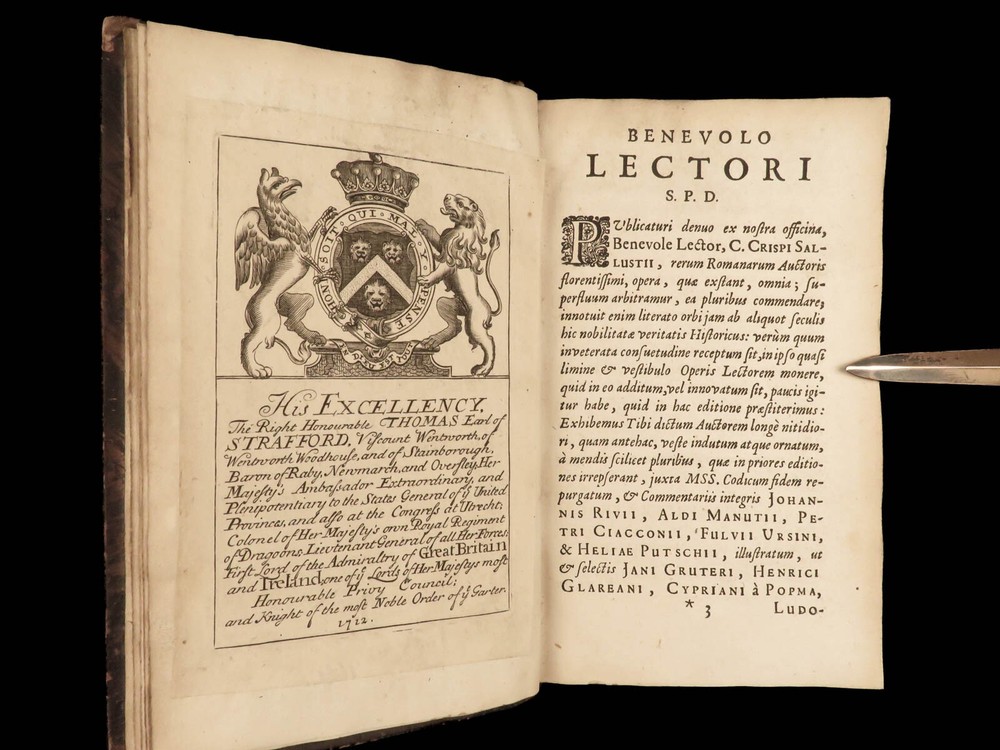 HONI · SOIT · QUI · MAL · Y · PENSE
His EXCELLENCY,
The Right Honourable THOMAS Earl of
STRAFFORD, Viſcount Wentworth, of
Wentworth Woodhouſe, and of Stainborough,
Baron of Raby, Newmarch, and Overſley, Her
Majeſty's Ambaſsador Extraordinary, and
Plenipotentiary to the States General of yͤ United
Provinces, and alſo at the Congreſs at Utrecht;
Colonel of Her Majeſty's own Royal Regiment
of Dragoons, Lieutenant General of all Her Forces,
Firſt Lord of the Admiraltry of Great Britain
and Ireland, one of yͤ Lords of Her Majeſtys moſt
Honourable Privy Council;
and Knight of the moſt Noble Order of yͤ Garter.
1712.
BENEVOLO
LECTORI
S. P. D.
PUblicaturi denuo ex noſtra officina,
Benevole Lector, C. CRISPI SAL-
LUSTII, rerum Romanarum Auctoris
florentiſſimi, opera, quæ exſtant, omnia; ſu-
perfluum arbitramur, ea pluribus commendare;
innotuit enim literato orbi jam ab aliquot ſeculis
hic nobilitatæ veritatis Hiſtoricus: verùm quum
inveterata conſuetudine receptum ſit, in ipſo quaſi
limine & veſtibulo Operis Lectorem monere,
quid in eo additum, vel innovatum ſit, paucis igi-
tur habe, quid in hac editione præſtiterimus:
Exhibemus Tibi dictum Auctorem longè nitidio-
ri, quam antehac, veſte indutum atque ornatum,
à mendis ſcilicet pluribus, quæ in priores editio-
nes irrepſerant, juxta MSS. Codicum fidem re-
purgatum, & Commentariis integris JOHAN-
NIS RIVII, ALDI MANUTII, PE-
TRI CIACCONII, FULVII URSINI,
& HELIAE PUTSCHII, illuſtratum, ut
& ſelectis JANI GRUTERI, HENRICI
GLAREANI, CYPRIANI à POPMA,
* 3 LUDO-